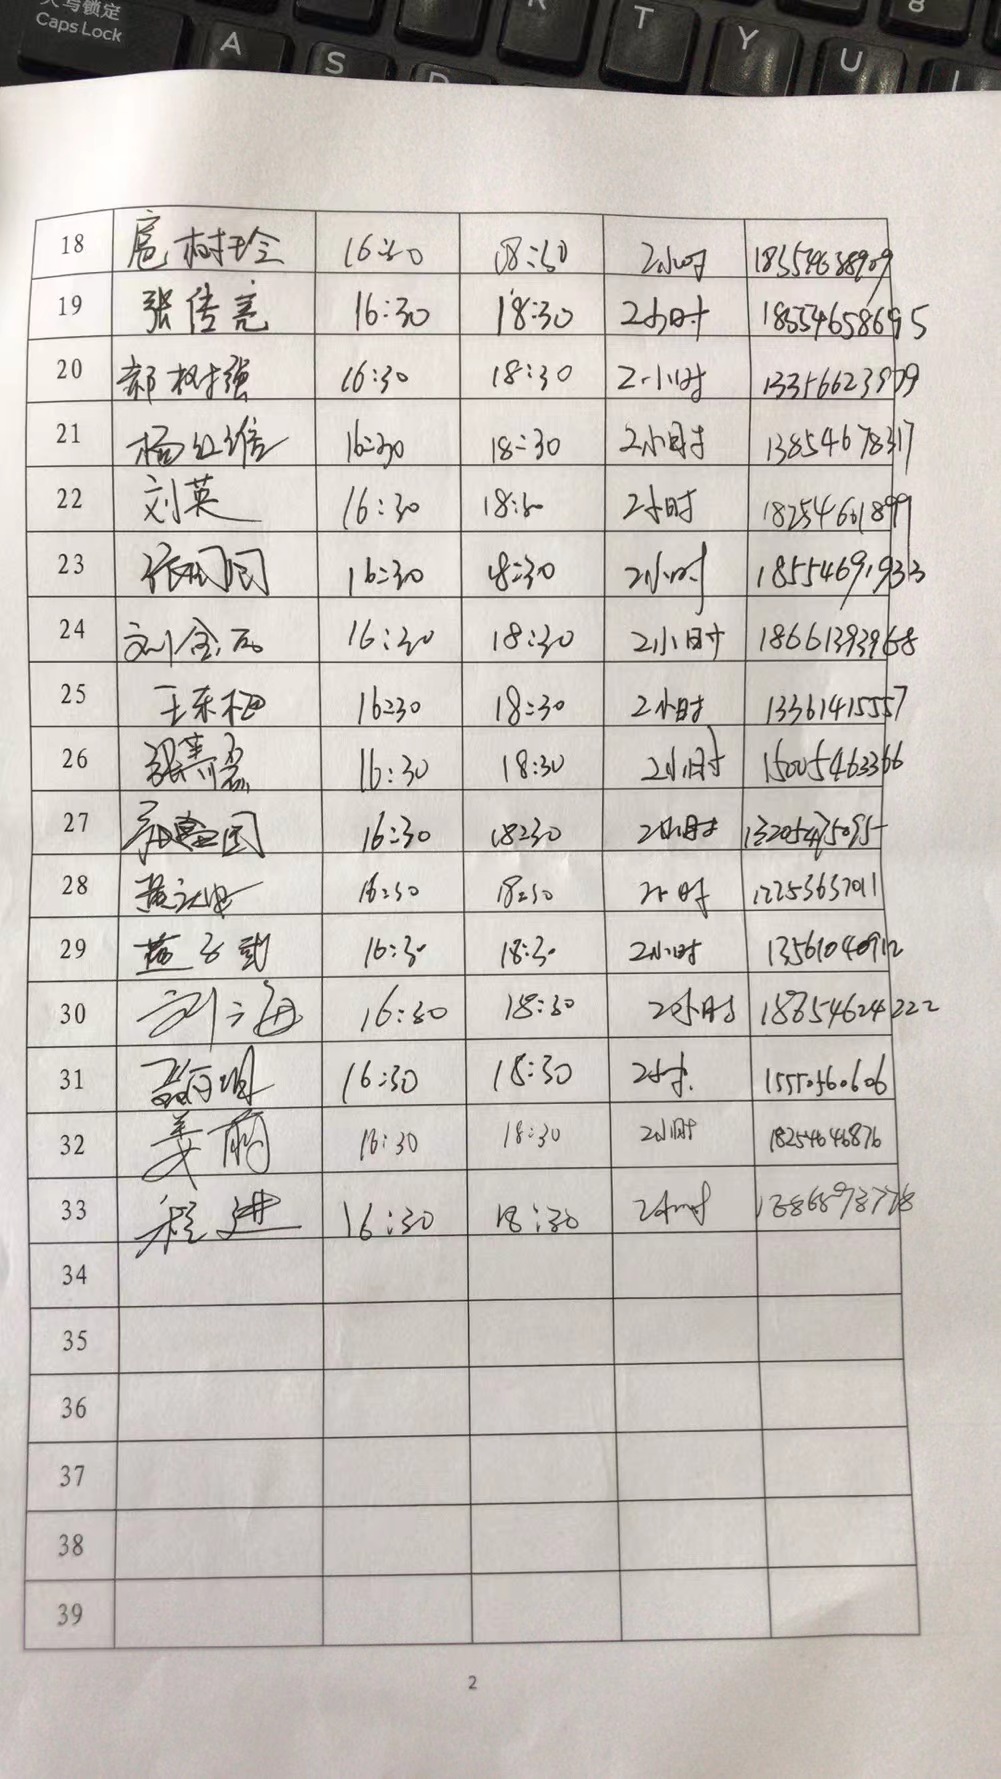 大写锁定
Caps Lock
A S D R T Y U 8
18 扈树珍 16:30 18:30 2小时 18554638909
19 张传亮 16:30 18:30 2小时 18554658695
20 郝树强 16:30 18:30 2小时 13356623979
21 杨红维 16:30 18:30 2小时 13854678317
22 刘英 16:30 18:30 2小时 18254661899
23 16:30 18:30 2小时 18554691933
24 刘金 16:30 18:30 2小时 18661393968
25 王东梅 16:30 18:30 2小时 13361415557
26 16:30 18:30 2小时 15005463366
27 16:30 18:30 2小时 13205475095
28 16:30 18:30 2小时
29 16:30 18:30 2小时 13561040912
30 刘海 16:30 18:30 2小时 18854624222
31 16:30 18:30 2小时 15550560606
32 姜 16:30 18:30 2小时 18254646876
33 程进 16:30 18:30 2小时
34
35
36
37
38
39
2